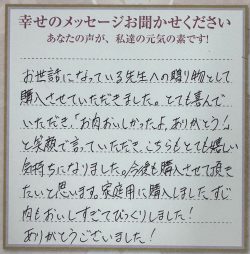 幸せのメッセージお聞かせください
あなたの声が、私達の元気の素です!
お世話になっている先生への贈り物として
購入させていただきました。とても喜んで
いただき、「お肉おいしかったよ、ありがとう!」
と笑顔で言っていただき、こちらもとても嬉しい
気持ちになりました。今後も購入させて頂き
たいと思います。家庭用に購入しましたすじ
肉もおいしすぎてびっくりしました!
ありがとうございました!